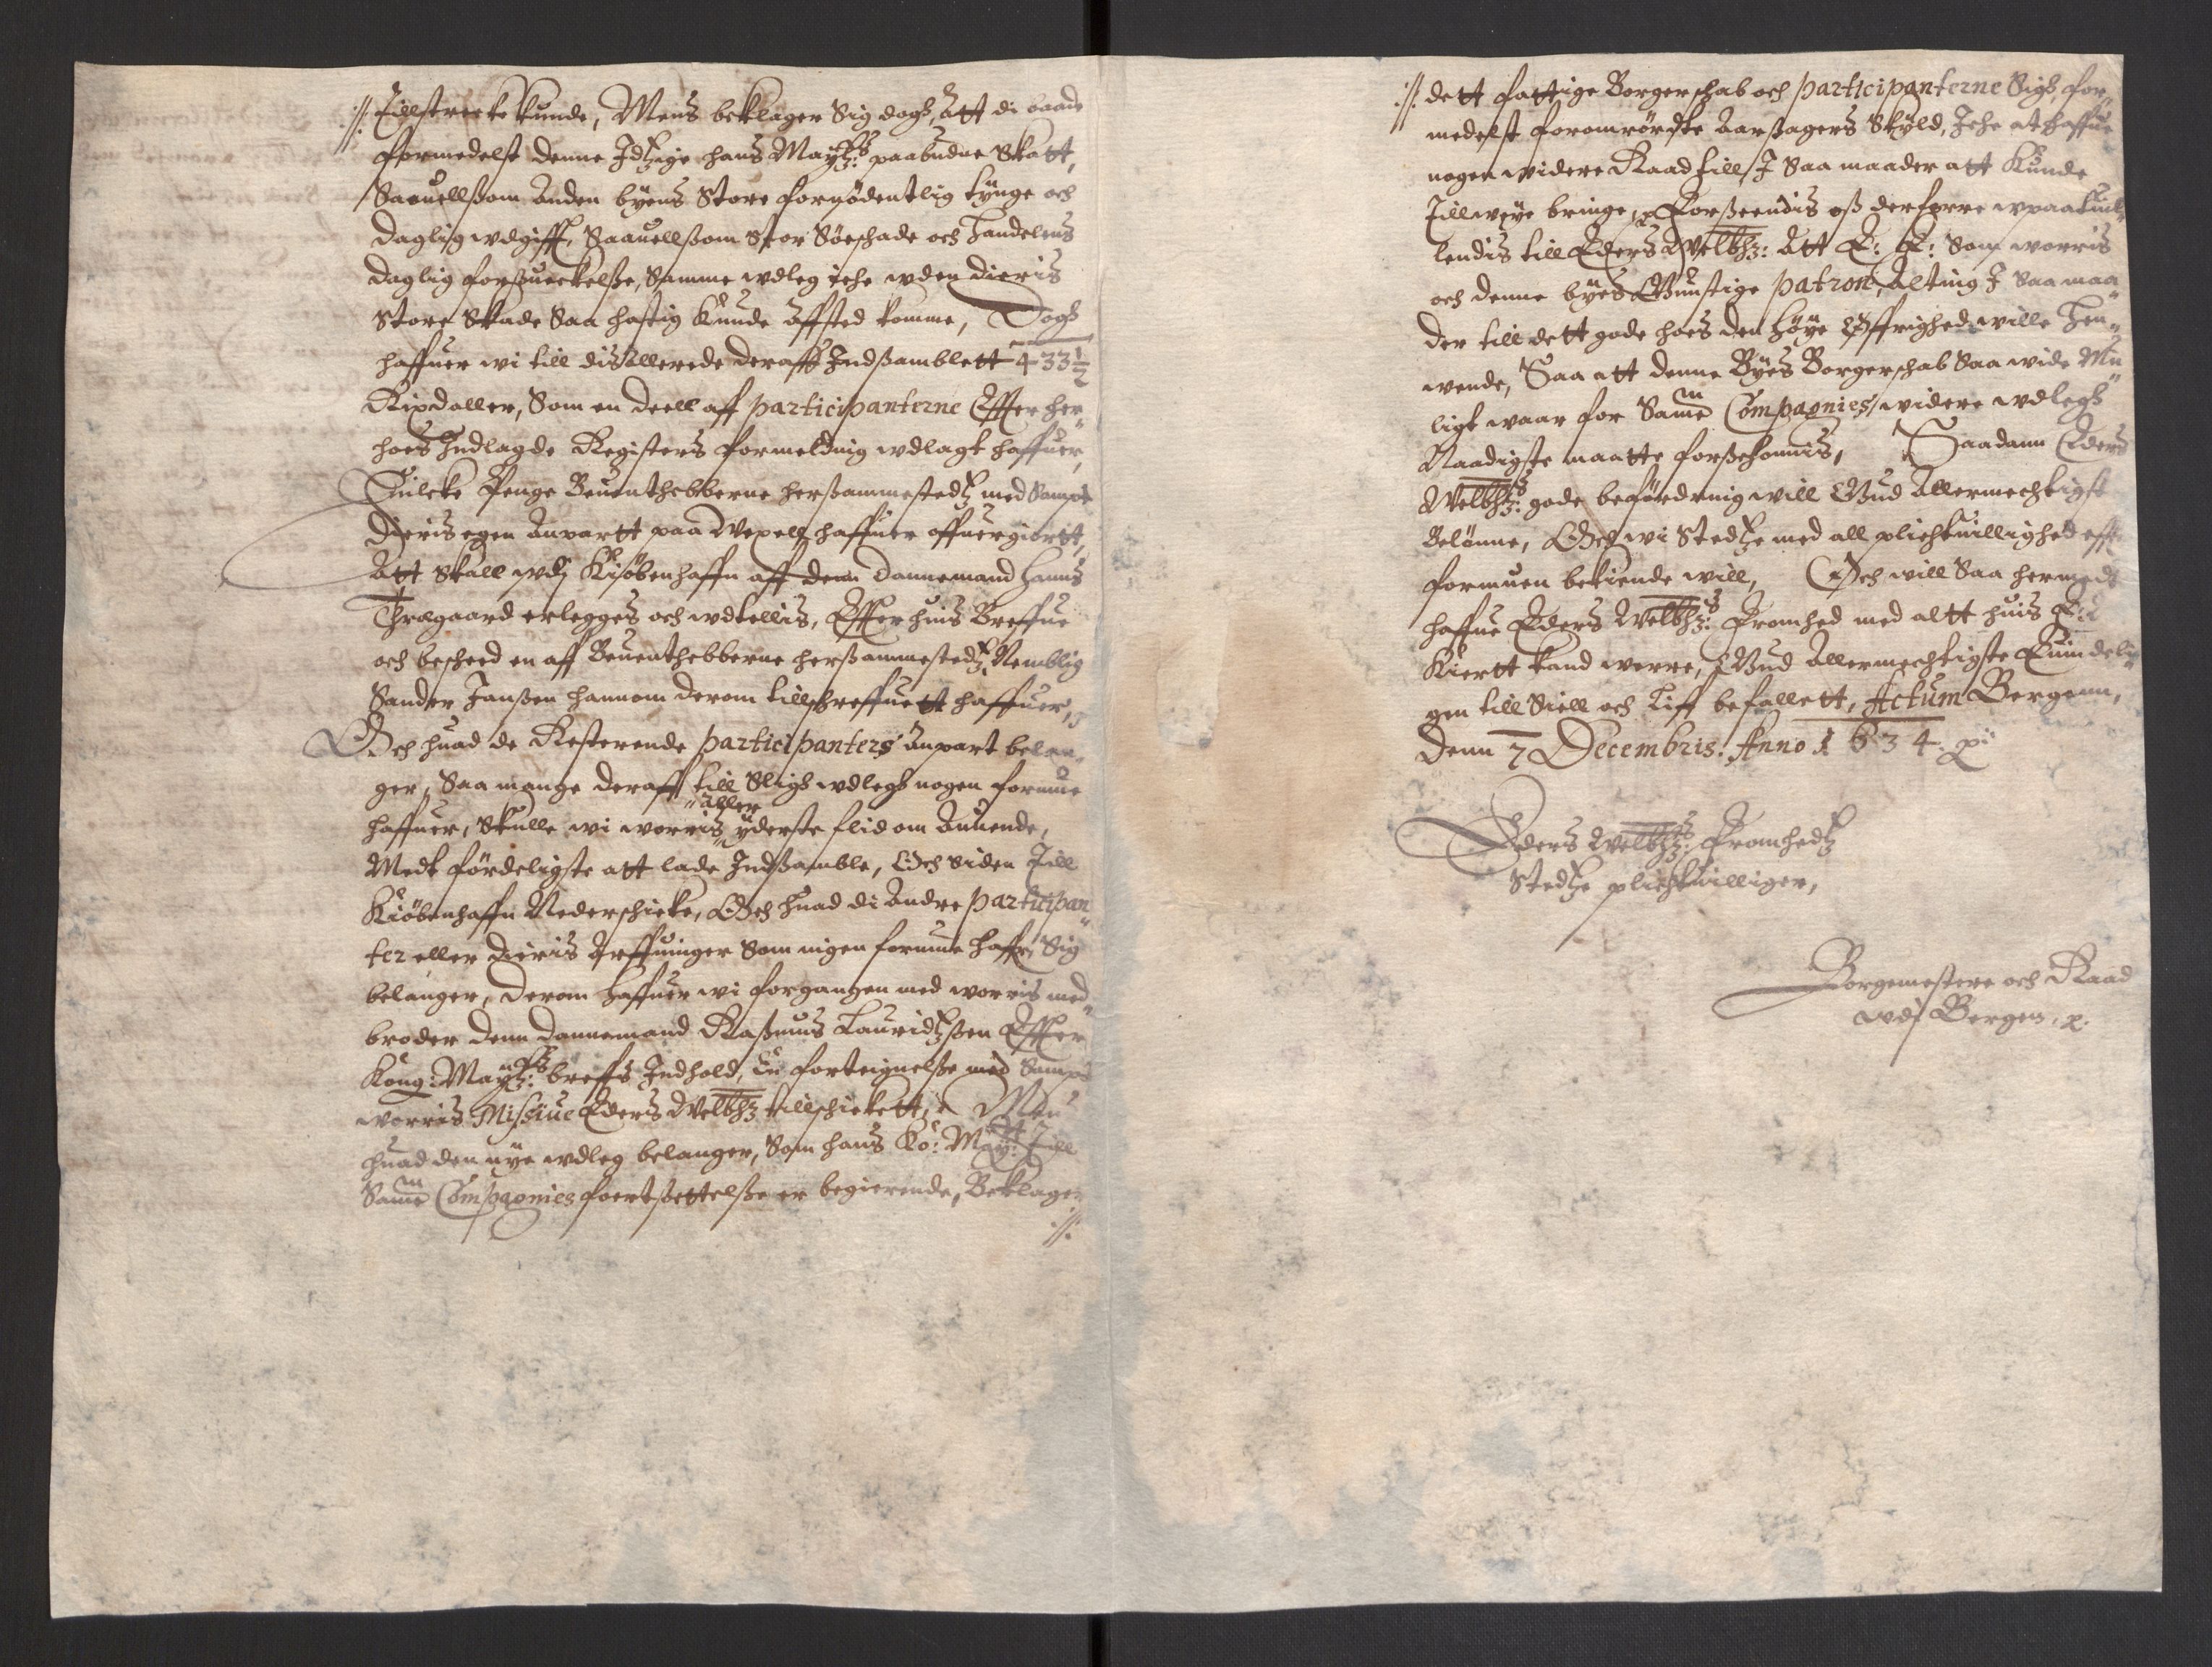 :// Tillstrecke kunde, Mens beklager Sig dogh, Att di baade
formedelst denne Idtzige hans Maytz: paabudne Skatt,
Saauellsom Anden byens Store fornødentlig tynge och
daglig udgifft, Saauellsom Stor Søeschade och Handelens
daglig forsueckelse, Samme udleg iche uden dieris
Store Skade Saa hastig kunde Affsted komme, Dogh
haffuer wi till dis Allerede deraff Indsamblett 433½
Rixdaller, Som en deell aff participanterne Effter her„
hoes Indlagde Registers formelding udlagt haffuer,
Huilcke Penge Beuenthebberne hersammestedtz med Sampt
dieris egen Anpartt paa Wexell haffuer offuergiortt,
Att Skall udj Kiøbenhaffn aff denn dannemand Hans
Thraegaard erlegges och udtellis, Effter huis Breffue
och bescheed en aff Beuenthebberne hersammestedtz Nemblig
Sander Jansen hannom derom tillschreffuett haffuer,
Och huad de Resterende participanters anpart belan„
ger, Saa mange deraff till Sligh udlegh nogen formue
haffuer, Skulle wi worris aller yderste flid om Anuende,
Medt förderligste att lade Indsamble, Och Siden Till
Kiöbenhaffn Nederschicke, Och huad di Andre participan„
ter eller dieris Arffuinger Som ingen formue haffr, Sig
belanger, derom haffuer wi forgangen med worris med„
broder denn dannemand Rasmus Lauridtzsen Effter
Kong: Maytz: breffs Indhold, En forteignelse med Sampt
worris Missiue Eders Welbhz tillschickett, Men
huad den nye udleg belanger, Som hans Ko: May: Till
Samme Compagnies foortsettelse er begierende, Beklager
://:
:// dett fattige Borgerschab och participanterne Sigh, for„
medelst foromrördte Aarsagers Skyld, Iche at haffue
nogen widere Raad till I Saa maader att kunde
Tillweye bringe, Forseendis oss derforre upaatuil„
lendis till Eders Welbhz: Att E: E: Som worris
och denne byes Gunstige patron, Alting I Saa maa„
der till dett gode hoes den Höye Öffrighed wille Hen„
wende, Saa att denne Byes Borgerschab Saa wide Mu„
ligt waar for Samme Compagnies widere udlegh
Naadigste maatte forschonnis, Saadann Eders
Welbhz: gode befordring will Gud Allermechtigst
Belönne, Och wi Stedtze med all plichtuillighed effter
formuen bekiende will, Och will Saa hermedt
haffue Eders Welbhz: Fromhed med altt huis E:
Kiertt kand werre, Gud Allermechtigste Euindeli„
gen till Siell och Liff befallett, Actum Bergenn,
Denn 7 Decembris: Anno 1634.
Eders Welbhz: Fromhedtz
Stedtze plichtwilliger,
Borgemestere och Raad
udj Bergen,